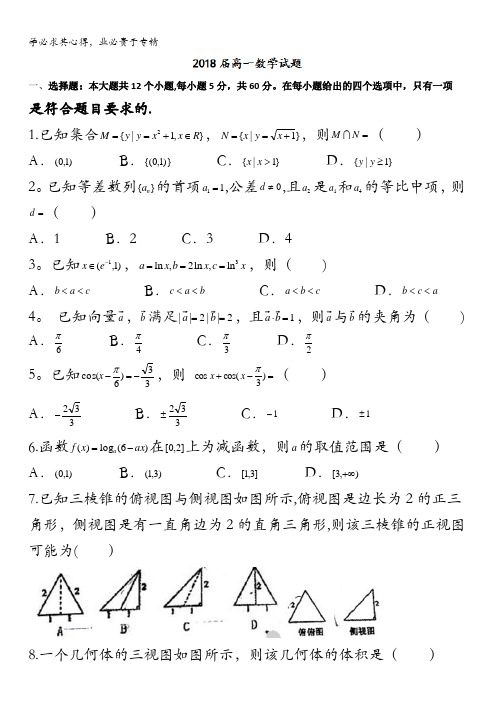 学必求其心得，业必贵于专精
2018届高一数学试题
一、选择题：本大题共12个小题,每小题5分，共60分。在每小题给出的四个选项中，只有一项
是符合题目要求的.
1.已知集合M={y|y=x²+1,x∈R}，N={x|y=√(x+1)}，则M∩N=（ ）
A．(0,1) B．{(0,1)} C．{x|x>1} D．{y|y≥1}
2。已知等差数列{aₙ}的首项a₁=1,公差d≠0,且a₂是a₁和a₄的等比中项，则
d=（ ）
A．1 B．2 C．3 D．4
3。已知x∈(e⁻¹,1)，a=ln x,b=2ln x,c=ln³ x，则（ ）
A．b<a<c B．c<a<b C．a<b<c D．b<c<a
4。 已知向量a⃗，b⃗满足|a⃗|=2|b⃗|=2，且a⃗·b⃗=1，则a⃗与b⃗的夹角为（ ）
A．π/6 B．π/4 C．π/3 D．π/2
5。已知cos(x-π/6)=-√3/3，则 cos x+cos(x-π/3)=（ ）
A．-2√3/3 B．±2√3/3 C．-1 D．±1
6.函数f(x)=logₐ(6-ax)在[0,2]上为减函数，则a的取值范围是（ ）
A．(0,1) B．(1,3) C．(1,3] D．[3,+∞)
7.已知三棱锥的俯视图与侧视图如图所示,俯视图是边长为2的正三
角形，侧视图是有一直角边为2的直角三角形,则该三棱锥的正视图
可能为( ）
2 1 1 A 2 1 1 B 2 1 1 C 2 1 1 D 2 俯视图 侧视图
8.一个几何体的三视图如图所示，则该几何体的体积是（ ）